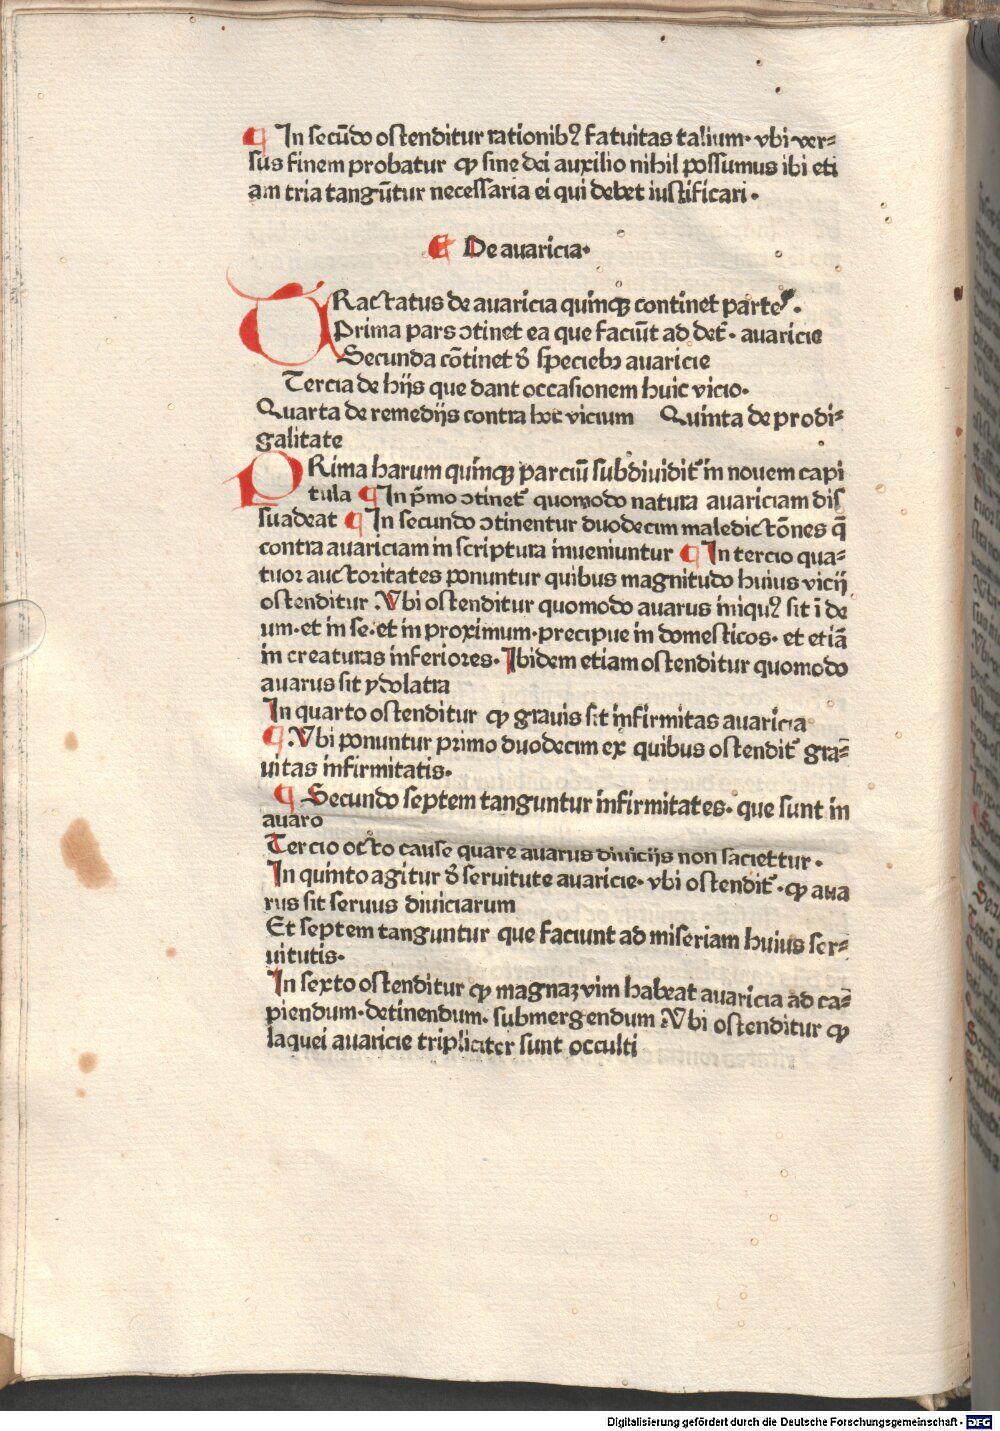 ¶ In secūdo ostenditur rationibꝰ fatuitas talium· vbi ver⸗
sus finem probatur ꝙ sine dei auxilio nihil possumus ibi eti
am tria tangūtur necessaria ei qui debet iustificari·
¶ De auaricia·
TRactatus de auaricia quinqꝫ continet partes·
Prima pars ↄtinet ea que faciūt ad det̄· auaricie
Secunda cōtinet δ speciebꝰ auaricie
Tercia de hijs que dant occasionem huic vicio·
Quarta de remedijs contra hoc vicium Quinta de prodi⸗
galitate
PRima harum quinqꝫ parciū subdiuidit̄ in nouem capi
tula ¶ In p̄mo ↄtinet̄ quomodo natura auariciam dis
suadeat ¶ In secundo ↄtinentur duodecim maledictōnes q̄
contra auariciam in scriptura inueniuntur ¶ In tercio qua⸗
tuor auctoritates ponuntur quibus magnitudo huius vicij
ostenditur Vbi ostenditur quomodo auarus iniquꝰ sit ī de
um· et in se· et in proximum· precipue in domesticos· et etiā
in creaturas inferiores· Ibidem etiam ostenditur quomodo
auarus sit ydolatra
In quarto ostenditur ꝙ grauis sit infirmitas auaricia
¶ Vbi ponuntur primo duodecim ex quibus ostendit̄ gra⸗
uitas infirmitatis·
¶ Secundo septem tanguntur infirmitates· que sunt in
auaro
Tercio octo cause quare auarus diuicijs non saciettur·
In quinto agitur δ seruitute auaricie· vbi ostendit̄· ꝙ aua
rus sit seruus diuiciarum
Et septem tanguntur que faciunt ad miseriam huius ser⸗
uitutis·
In sexto ostenditur ꝙ magnaꝫ vim habeat auaricia ad ca⸗
piendum· detinendum· submergendum Vbi ostenditur ꝙ
laquei auaricie tripliciter sunt occulti
Digitalisierung gefördert durch die Deutsche Forschungsgemeinschaft - DFG